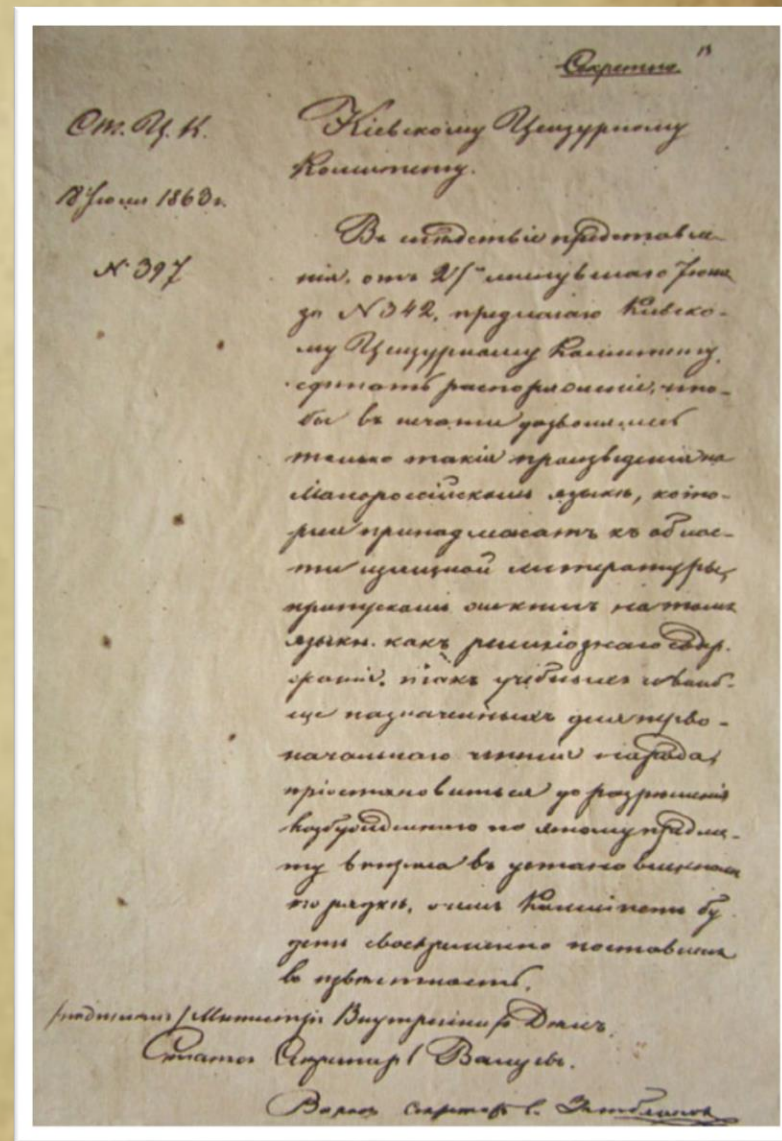 Секретно
От. Ц. К.
Кіевскому Цензурному
Комитету.
18 Июля 1863 г.
№ 397
Въ слѣдствіе представле-
нія, отъ минувшаго Іюня
за № 342, предлагаю Кіевско-
му Цензурному Комитету
сдѣлать распоряженіе, что-
бы къ печати дозволялись
только такія произведенія на
Малороссійскомъ языкѣ, кото-
рыя принадлежатъ къ облас-
ти изящной литературы,
пропускомъ же книгъ на томъ
языкѣ, какъ религіознаго содер-
жанія, такъ учебныхъ и вооб-
ще назначенныхъ для перво-
начальнаго чтенія народа,
пріостановиться до разрѣшенія
возбужденнаго по этому предме-
ту вопроса въ установленномъ
порядкѣ, о чемъ Комитетъ бу-
детъ своевременно поставленъ
въ извѣстность.
/подписалъ/ Министръ Внутреннихъ Дѣлъ
Статсъ Секретарь Валуевъ.
секретарь